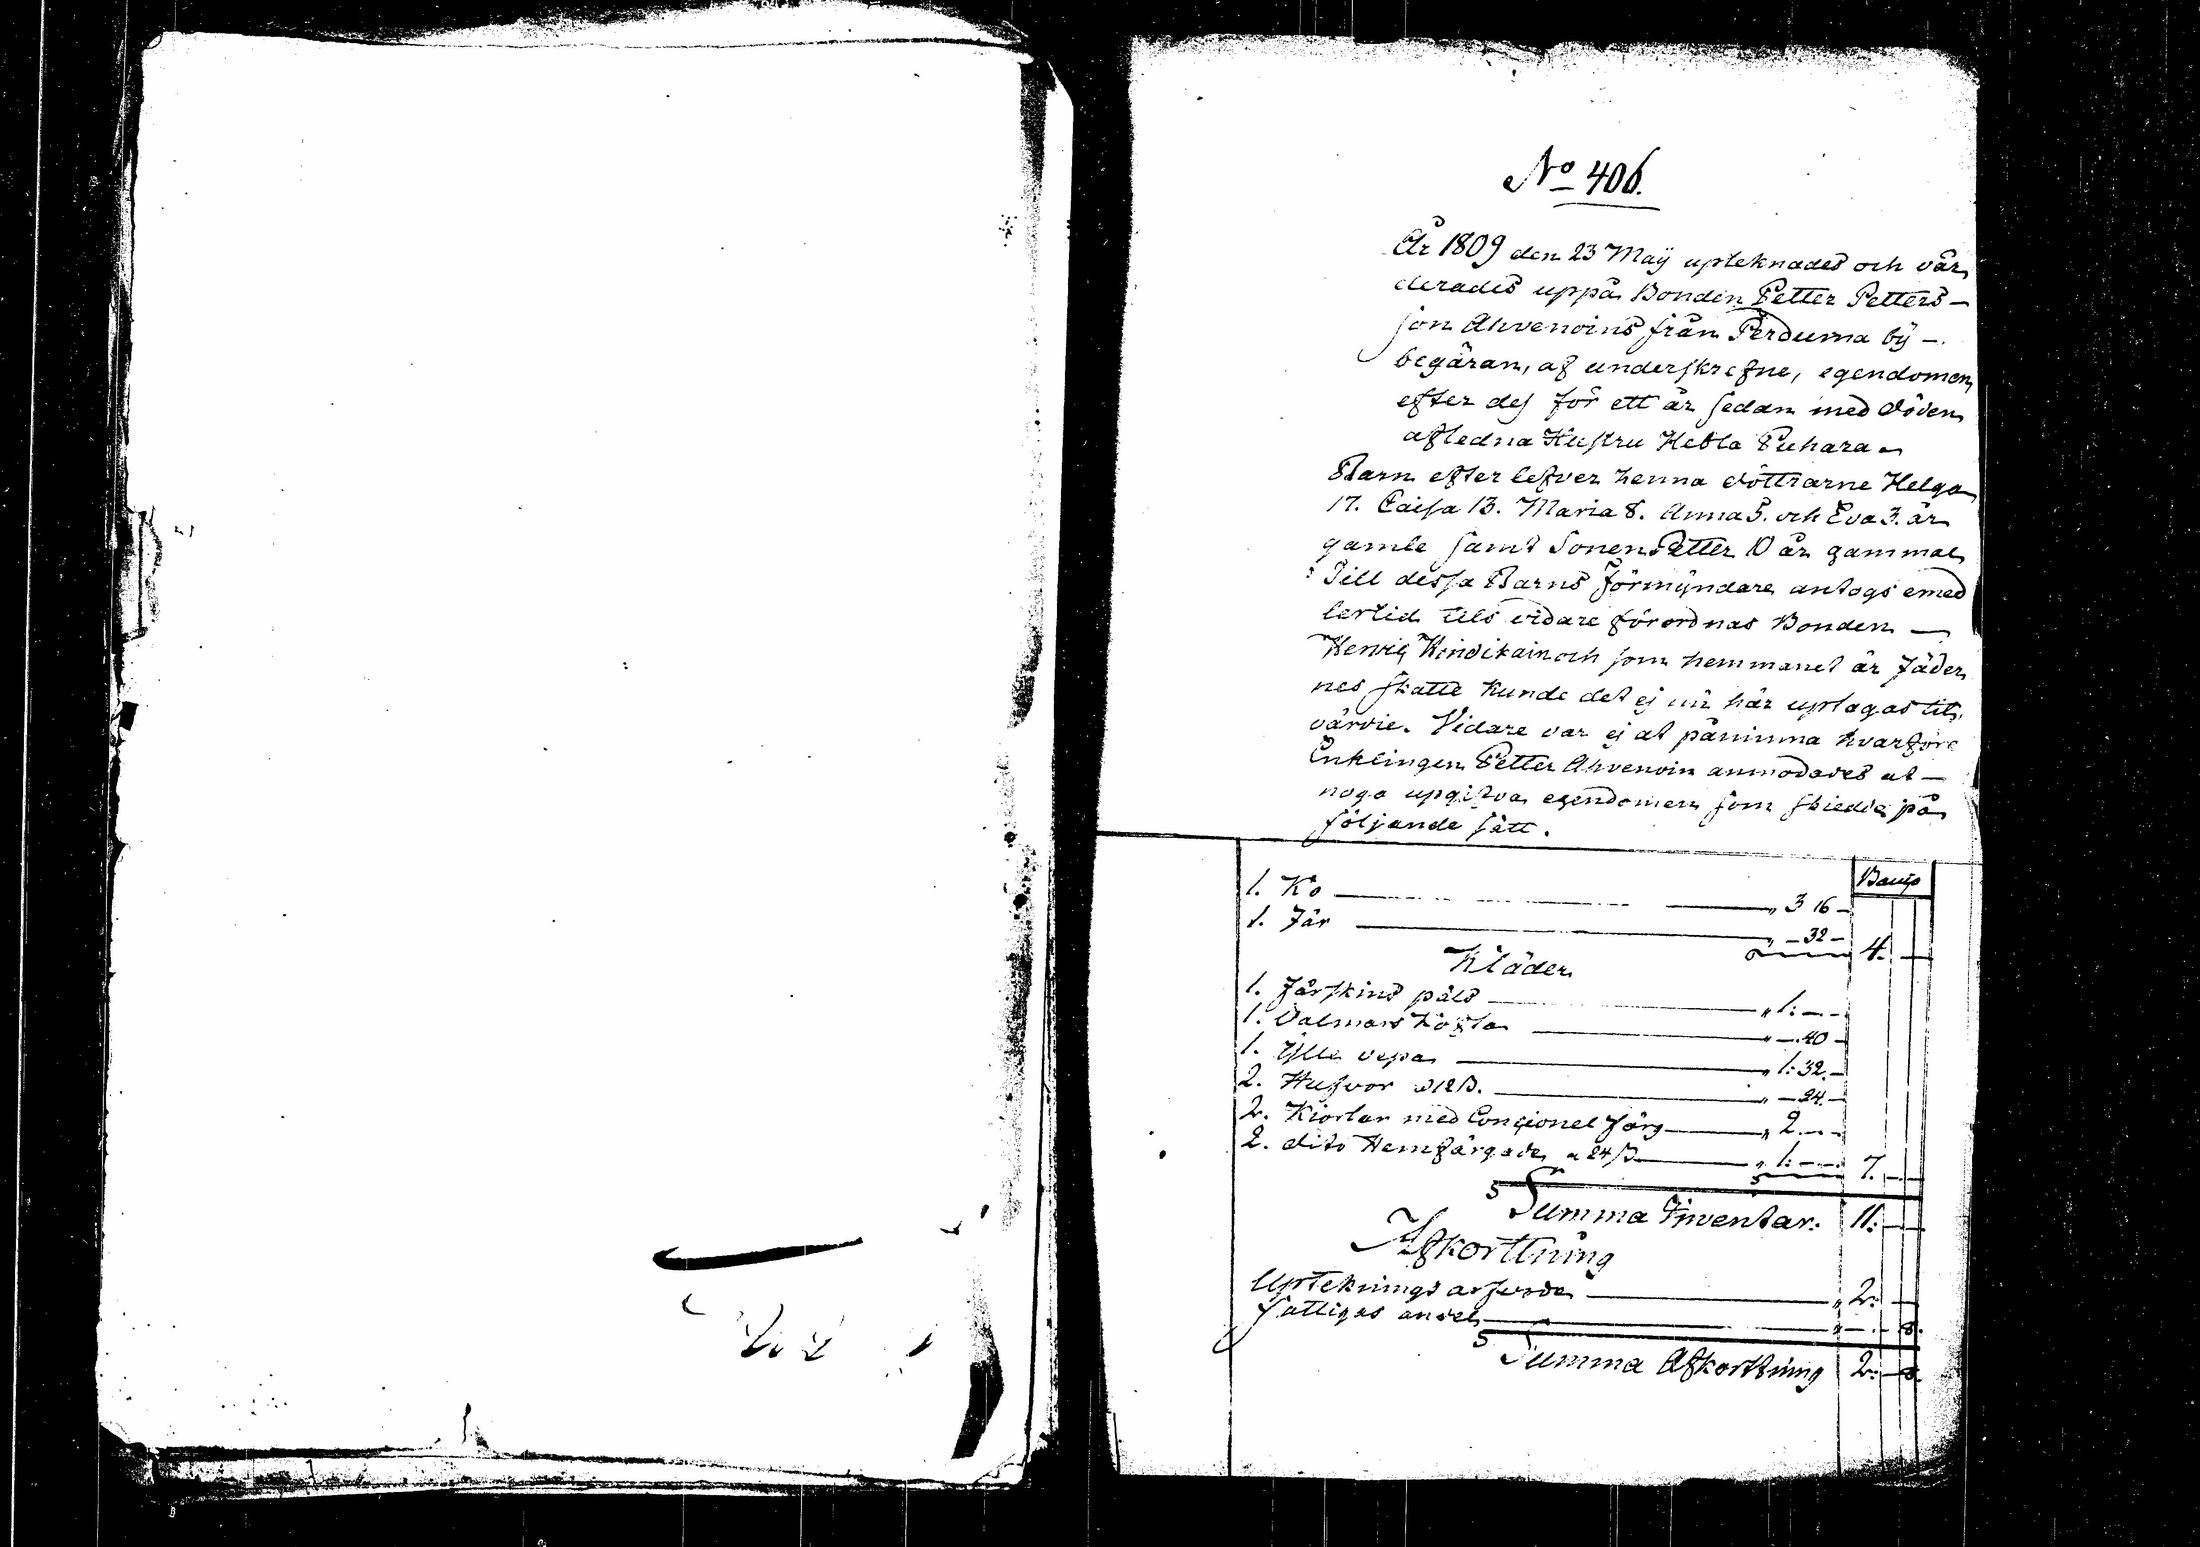 No 406.
År 1809 den 23 Maÿ upteknades och vär
derades uppå Bonden Petter Petters-
son Ahvenoins från Perduma bÿ -
begäran, af underskrefne, egendomen
efter des för ett år sedan med döden
afledna Hustru Hebla Puhara
Barn efterlefver henna döttrarne Helga
17. Caisa 13. Maria 8. Anna 5. och Eva 3. år
gamle samt Sonen Petter 10 år gammal
Till dessa Barns Förmÿndare antogs emed
lertid tils vidare förordnas Bonden -
Henric Kindikain och som hemmanet är Fäder
nes skatte kunde det ej nu här uptagas til
värvie. Vidare var ej at påminna hvarföre
Enklingen Petter Ahvenoin anmodades at -
noga upgifva egendomen som skiedde på
följande sätt.
Banco
1. Ko " 3 16 -
1. Får " - 32 - 4. -
Kläder
1. Fårskins päls " 1: - -
1. Valmars kofta " - 40 -
1. Ylle vepa " 1: 32. -
2. Hufvor a 12 ß. " - 24. -
2. Kiortlar med Färg " 2. - -
2. dito Hemfärgade a 24 ß " 1: - - 7. - -
Summa Inventar. 11: - -
Afkorttning
Uptekningsarfvode " 2: -
fattigas andel " - - 8.
Summa Afkorttning 2: - 8.